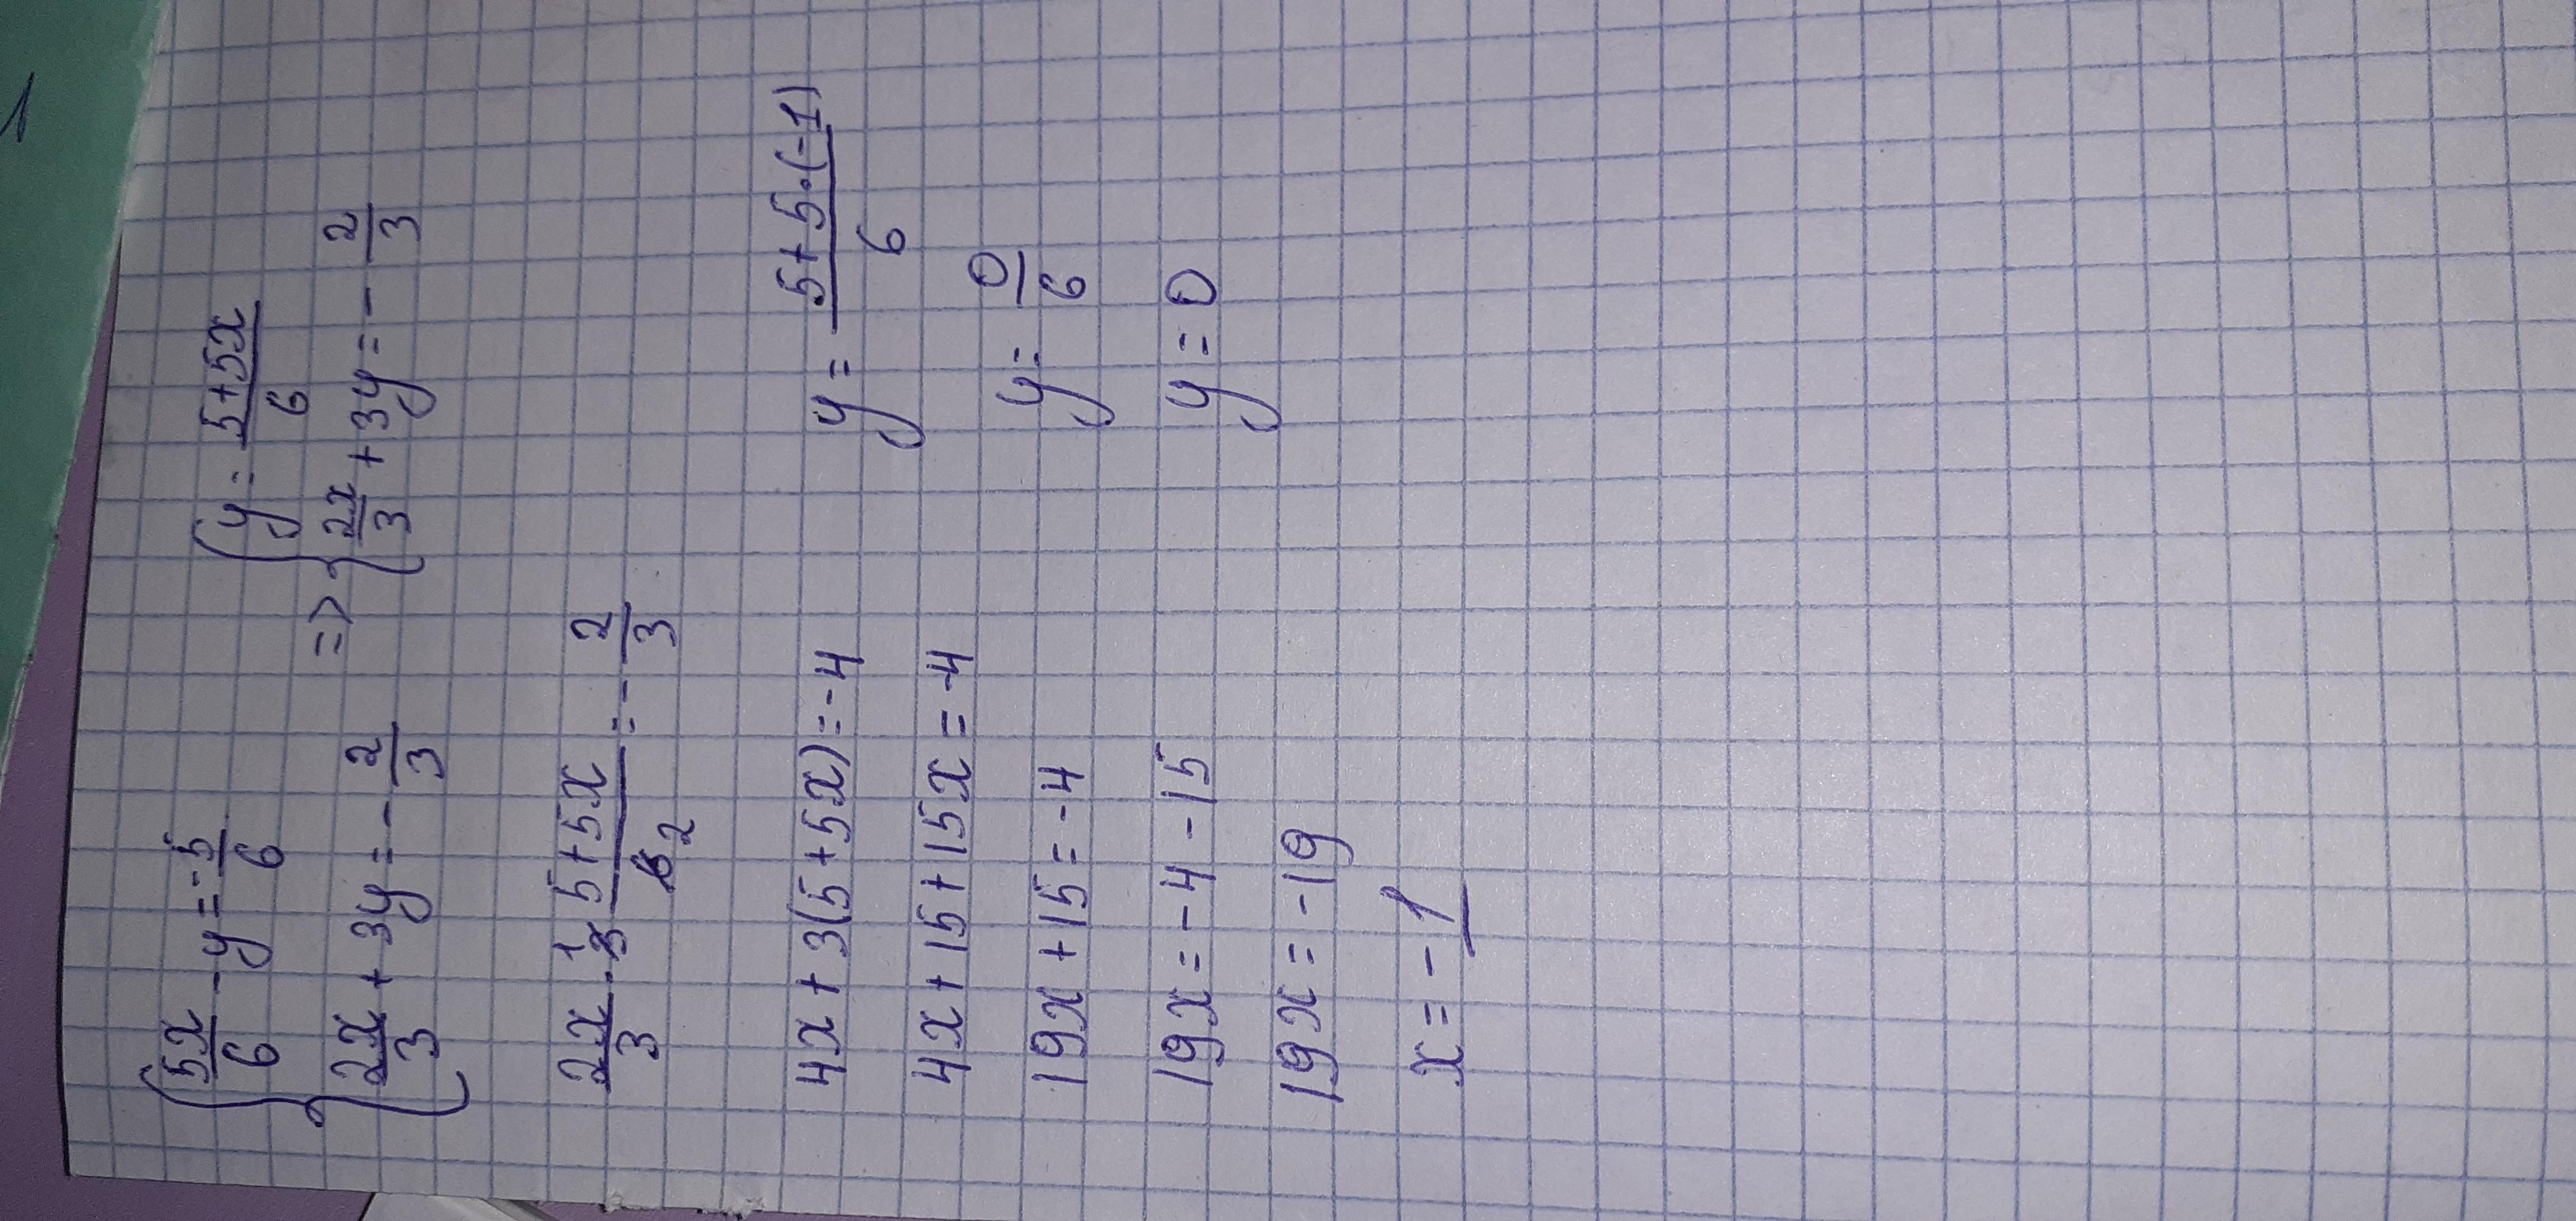 { 5x/6 - y = -5/6 => { y = 5+5x/6
{ 2x/3 + 3y = - 2/3 { 2x/3 + 3y = - 2/3
2x/3 · 3 1 5+5x/6 2 = - 2/3
4x + 3(5+5x) = -4
4x + 15 + 15x = -4
19x + 15 = -4
19x = -4 - 15
19x = -19
x = - 1
y = 5+5·(-1)/6
y = 0/6
y = 0
1